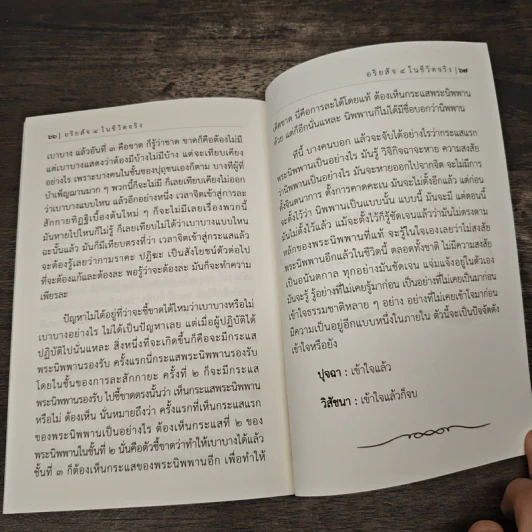 ๖๖ | อริยสัจ ๔ ในชีวิตจริง
เบาบาง แล้วอันที่ ๓ คือขาด ก็รู้ว่าขาด ขาดก็คือต้องไม่มี
แต่เบาบางแสดงว่าต้องมีบ้างไม่มีบ้าง แต่จะเทียบเคียง
อย่างไร เพราะบางคนในชั้นของปุถุชนเองก็ตาม บางทีผู้ที่
บำเพ็ญฌานมาก ๆ พวกนี้ก็จะไม่มี ก็เลยเทียบเคียงไม่ออก
ว่าเบาบางแบบไหน แล้วอีกอย่างหนึ่ง เวลาจิตเข้าสู่การละ
สักกายทิฏฐิเบื้องต้นใหม่ ๆ ก็จะไม่มีเลยเรื่องพวกนี้
มันหายไปไหนก็ไม่รู้ ก็เลยเทียบไม่ได้ว่าเบาบางแบบไหน
ฉะนั้นแล้ว มันก็มีเทียบตรงที่ว่า เวลาจิตเข้าสู่กระแสแล้ว
จะต้องรู้เลยว่ากามราคะ ปฏิฆะ เป็นสังโยชน์ตัวต่อไป
ที่จะต้องแก้และต้องละ พอรู้ว่าจะต้องละ มันก็จะทำความ
เพียรละ
ปัญหาไม่ได้อยู่ที่ว่าจะชี้ขาดได้ไหมว่าเบาบางหรือไม่
เบาบางอย่างไร ไม่ได้เป็นปัญหาเลย แต่เมื่อผู้ปฏิบัติได้
ปฏิบัติไปนั่นแหละ สิ่งหนึ่งที่จะเกิดขึ้นก็คือจะมีกระแส
พระนิพพานรองรับ ครั้งแรกนี่กระแสพระนิพพานรองรับ
โดยในชั้นของการละสักกายะ ครั้งที่ ๒ ก็จะมีกระแส
พระนิพพานรองรับ ไปชี้ขาดตรงนั้นว่า เห็นกระแสพระนิพพาน
หรือไม่ ต้องเห็น นั่นหมายถึงว่า ครั้งแรกที่เห็นกระแสแรก
ของพระนิพพานเป็นอย่างไร ต้องเห็นกระแสที่ ๒ ของ
พระนิพพานในชั้นที่ ๒ นั่นคือตัวชี้ขาดว่าทำให้เบาบางได้แล้ว
ชั้นที่ ๓ ก็ต้องเห็นกระแสของพระนิพพานอีก เพื่อทำให้
อริยสัจ ๔ ในชีวิตจริง | ๖๗
เด็ดขาด นี่คือการละได้โดยแท้ ต้องเห็นกระแสพระนิพพาน
ด้วย แต่ก็อีกนั่นแหละ นิพพานก็ไม่ได้มีชื่อบอกว่านิพพาน
ทีนี้ บางคนบอก แล้วจะจับได้อย่างไรว่ากระแสแรก
ว่านิพพานเป็นอย่างไร มันรู้ วิจิกิจฉาจะหาย ความสงสัย
ว่านิพพานเป็นอย่างไร มันจะหายออกไปจากจิต จะไม่มีการ
ตั้งจินตนาการ ตั้งการคาดคะเน มันจะไม่ตั้งอีกแล้ว แต่ก่อน
จะตั้งไว้ว่า นิพพานเป็นแบบนั้น แบบนี้ มันจะมี แต่ตอนนี้
มันไม่ตั้งไว้แล้ว แม้จะตั้งไว้ก็รู้ชัดเจนแล้วว่ามันไม่ตรงตาม
หลักของพระนิพพานที่แท้ จะรู้ในใจเองเลยว่าไม่สงสัย
พระนิพพานอีกแล้วในชีวิตนี้ ตลอดทั้งชาติ ไม่มีความสงสัย
เป็นอนันตกาล ทุกอย่างมันชัดเจน แจ่มแจ้งอยู่ในตัวเอง
มันจะรู้ รู้อย่างที่ไม่เคยรู้มาก่อน เป็นอย่างที่ไม่เคยเป็นมาก่อน
เข้าใจธรรมชาติหลาย ๆ อย่าง อย่างที่ไม่เคยเข้าใจมาก่อน
มีความเป็นอยู่อีกแบบหนึ่งในภายใน ตัวนี้จะเป็นปัจจัตตัง
เข้าใจหรือยัง
ปุจฉา : เข้าใจแล้ว
วิสัชนา : เข้าใจแล้วก็จบ